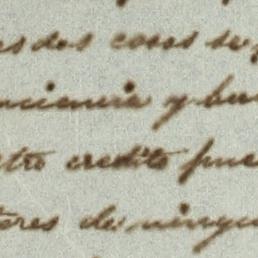 es dos cosas se
nciencia y bu
stro credito pue
teres de ningu